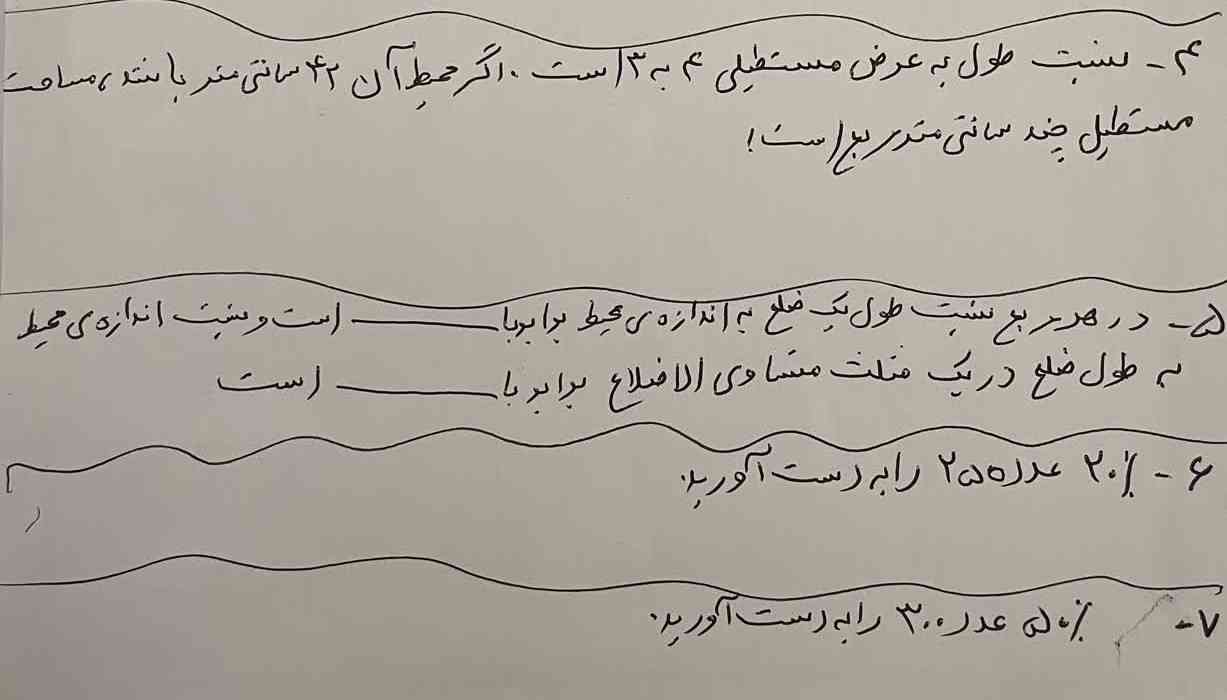 ۴- نسبت طول به عرض مستطیلی ۴ به ۳ است . اگر محیط آن ۴۲ سانتی متر باشد ، مساحت
مستطیل چند سانتی متر مربع است !
۵- در هر مربع نسبت طول یک ضلع به اندازه ی محیط برابر با ــــــــ است و نسبت اندازه ی محیط
به طول ضلع در یک مثلث متساوی الاضلاع برابر با ــــــــ است
۶- ۲۰٪ عدد ۲۵۵ را به دست آورید.
۷- ۵۰٪ عدد ۳۰۰ را به دست آورید.